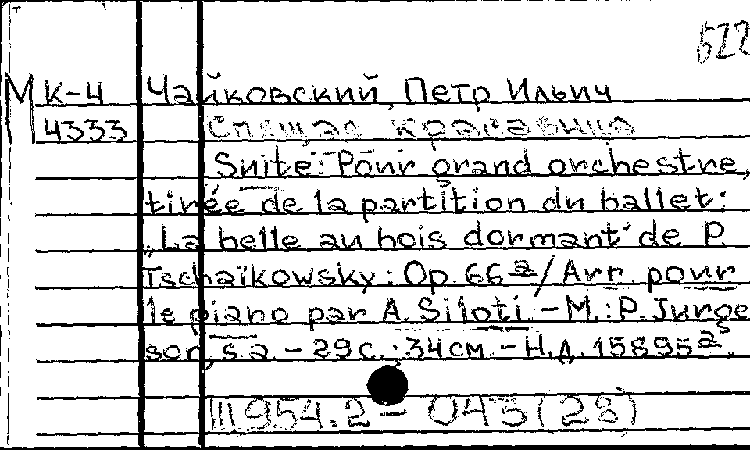 622
М К-4 Чайковский, Петр Ильич
4333 Спящая красавица
Suite: Pour grand orchestre,
tirée de la partition du ballet:
„La belle au bois dormant" de P.
Tschaïkowsky: Op. 66 a / Arr. pour
le piano par A. Siloti. – M.: P. Jurge
son, s. a. – 29 с.; 34 см. – Н. д. 15895 a.
III 954.2 – 043 (28)